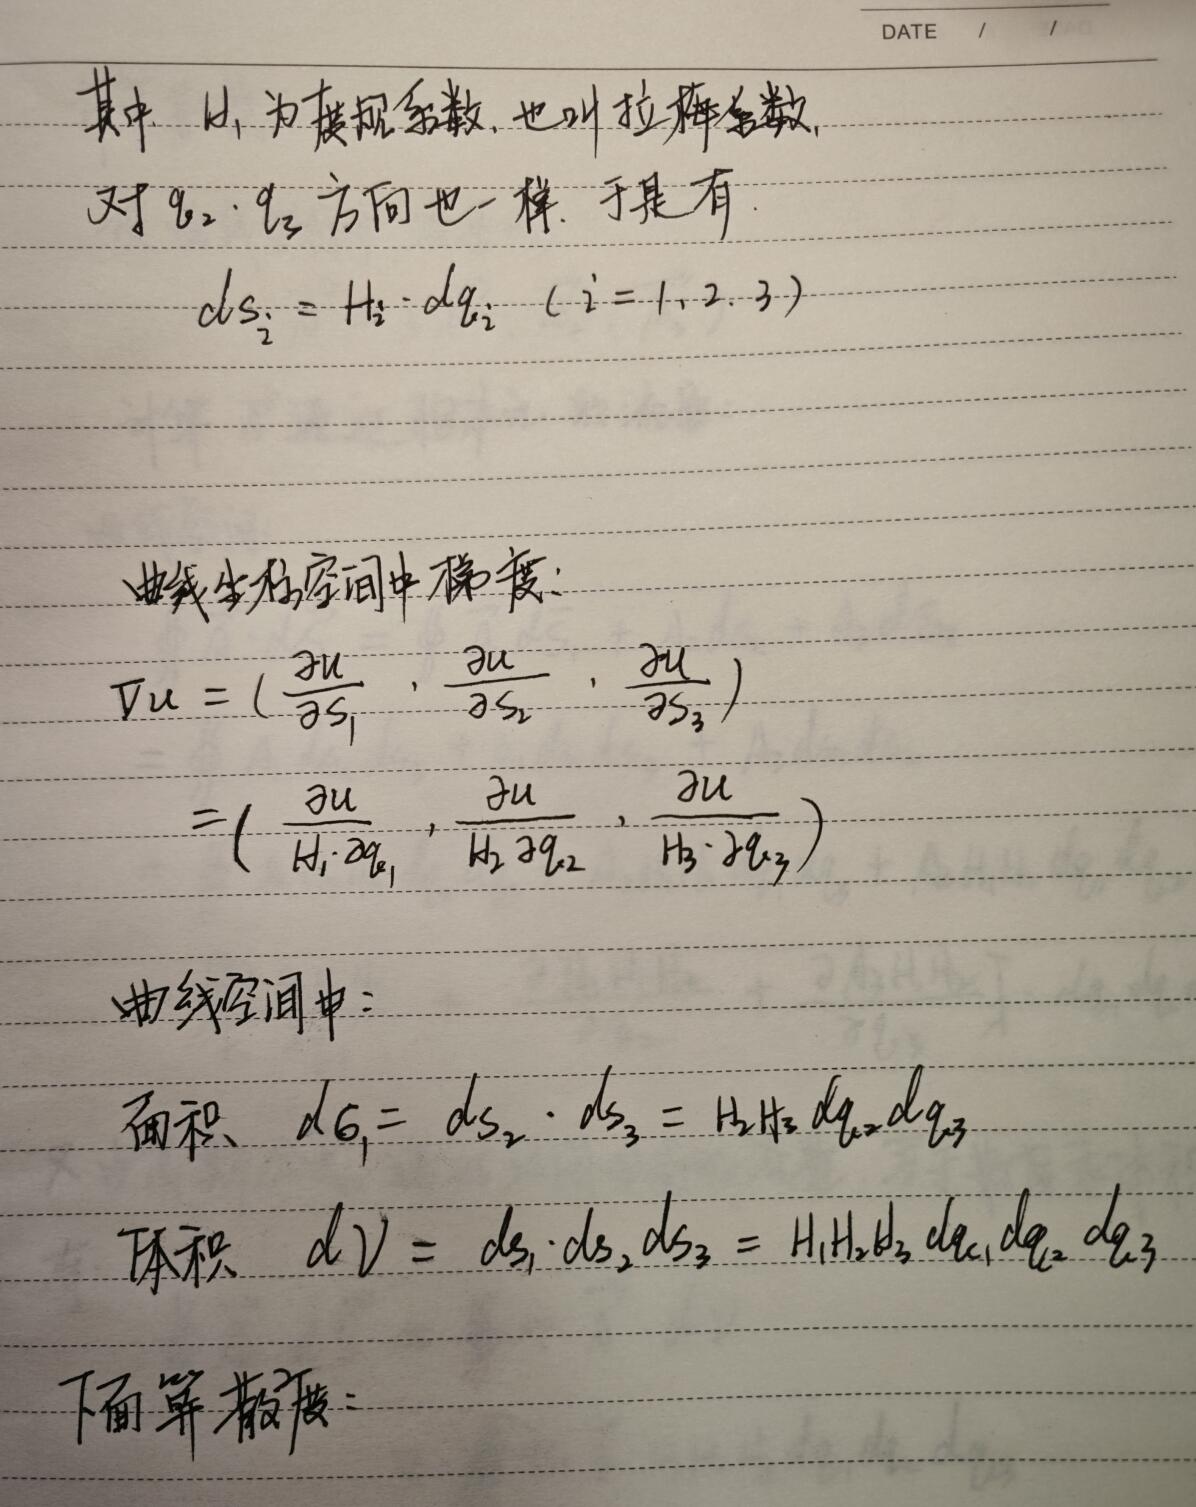 DATE / /
其中 H₁ 为度规系数、也叫拉梅系数,
对 q₂、q₃ 方向也一样. 于是有.
ds_i = H_i · dq_i (i = 1, 2, 3)
曲线坐标空间中梯度:
∇u = (∂u/∂s₁, ∂u/∂s₂, ∂u/∂s₃)
= (∂u/(H₁·∂q₁), ∂u/(H₂∂q₂), ∂u/(H₃·∂q₃))
曲线空间中:
面积 dσ₁ = ds₂ · ds₃ = H₂H₃ dq₂dq₃
体积 dV = ds₁·ds₂ds₃ = H₁H₂H₃ dq₁dq₂dq₃
下面算散度: